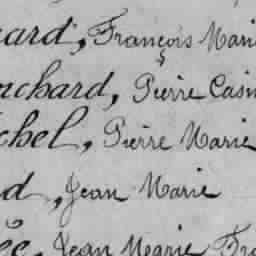 ard, François Mari
chard, Pierre Casi
chel, Pierre Marie
d, Jean Marie
ée, Jean Marie Fra